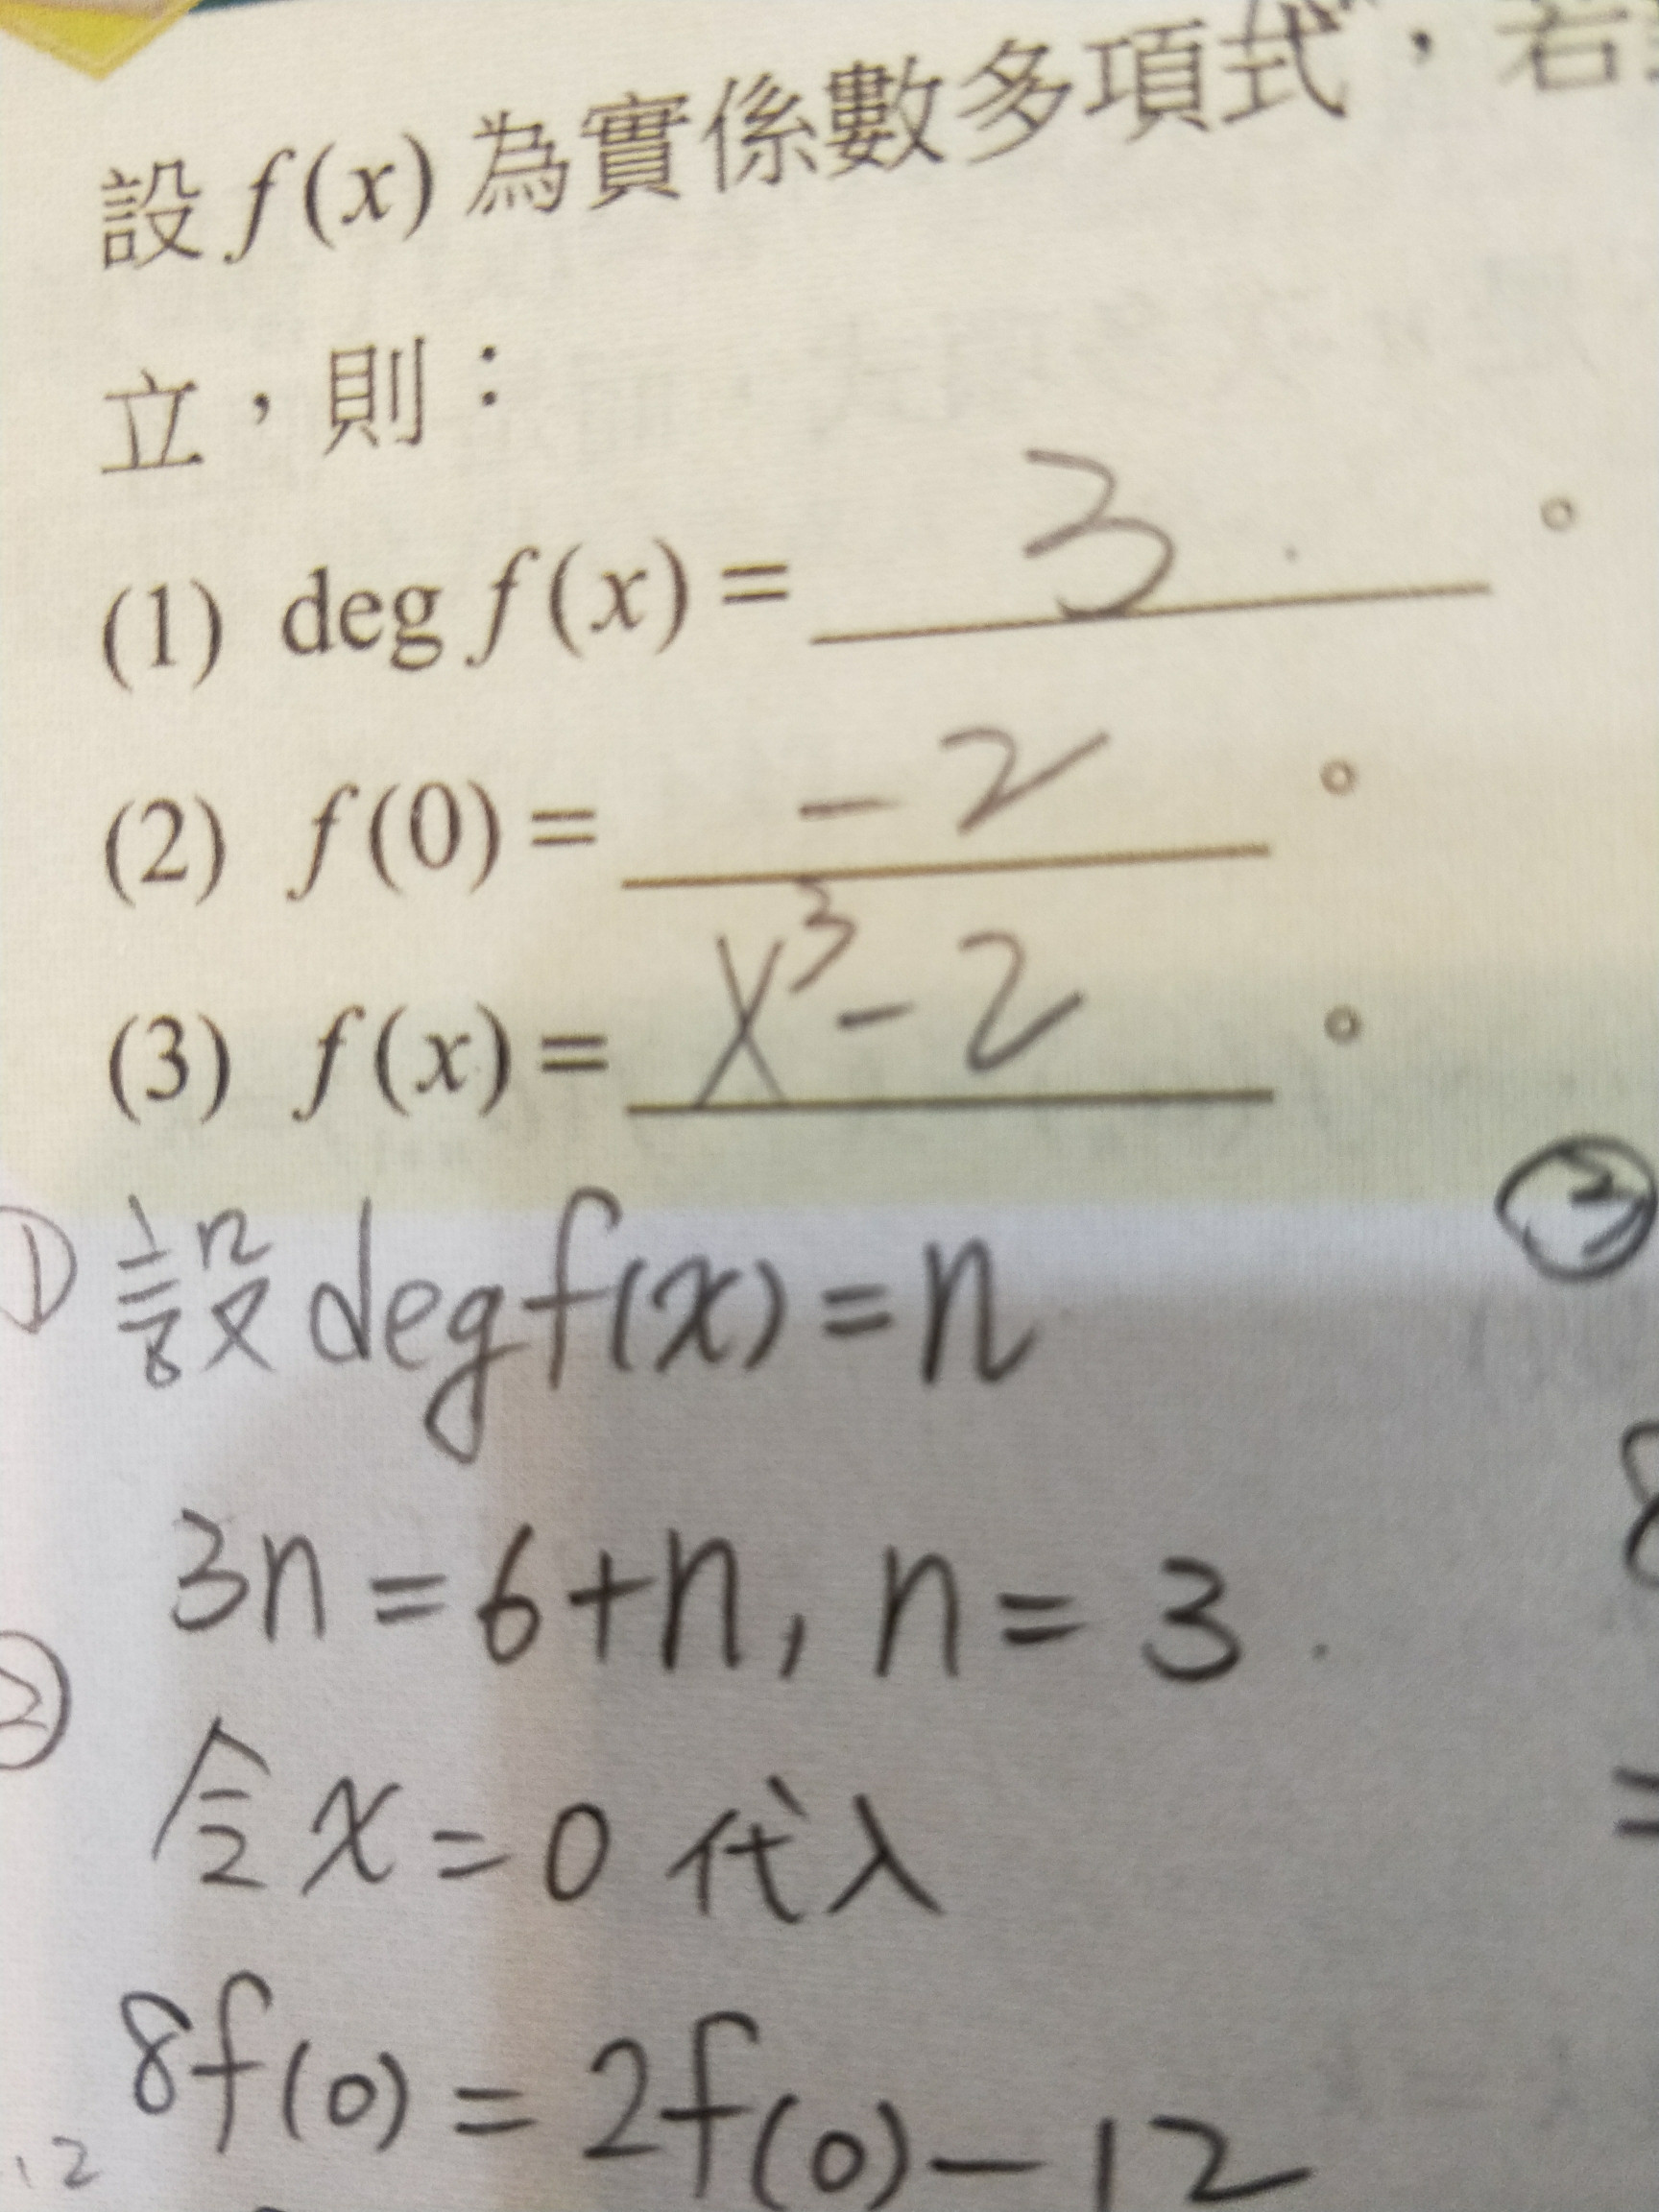 設 f(x) 為實係數多項式，若
立，則：
(1) deg f(x) = 3 。
(2) f(0) = -2 。
(3) f(x) = x³-2 。
① 設 deg f(x) = n
②
3n = 6+n, n = 3 .
② 令 x = 0 代入
8f(0) = 2f(0) - 12
12